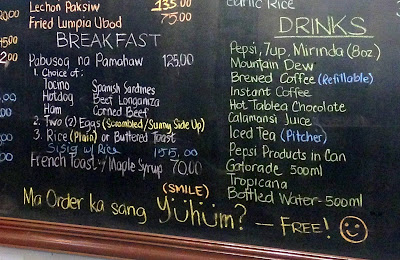 Lechon Paksiw 135.00
Fried Lumpia Ubod 75.00
BREAKFAST
Pabusog na Pamahaw 125.00
1. Choice of:
Tocino Spanish Sardines
Hotdog Beef Longaniza
Ham Corned Beef
2. Two (2) Eggs (Scrambled/Sunny Side Up)
3. Rice (Plain) or Buttered Toast
Sisig w/ Rice 155.00
French Toast w/ Maple Syrup 70.00
Garlic Rice
DRINKS
Pepsi, 7up, Mirinda (8oz)
Mountain Dew
Brewed Coffee (Refillable)
Instant Coffee
Hot Tablea Chocolate
Calamansi Juice
Iced Tea (Pitcher)
Pepsi Products in Can
Gatorade 500ml
Tropicana
Bottled Water - 500ml
(SMILE)
Ma Order ka sang Yuhum? — FREE!